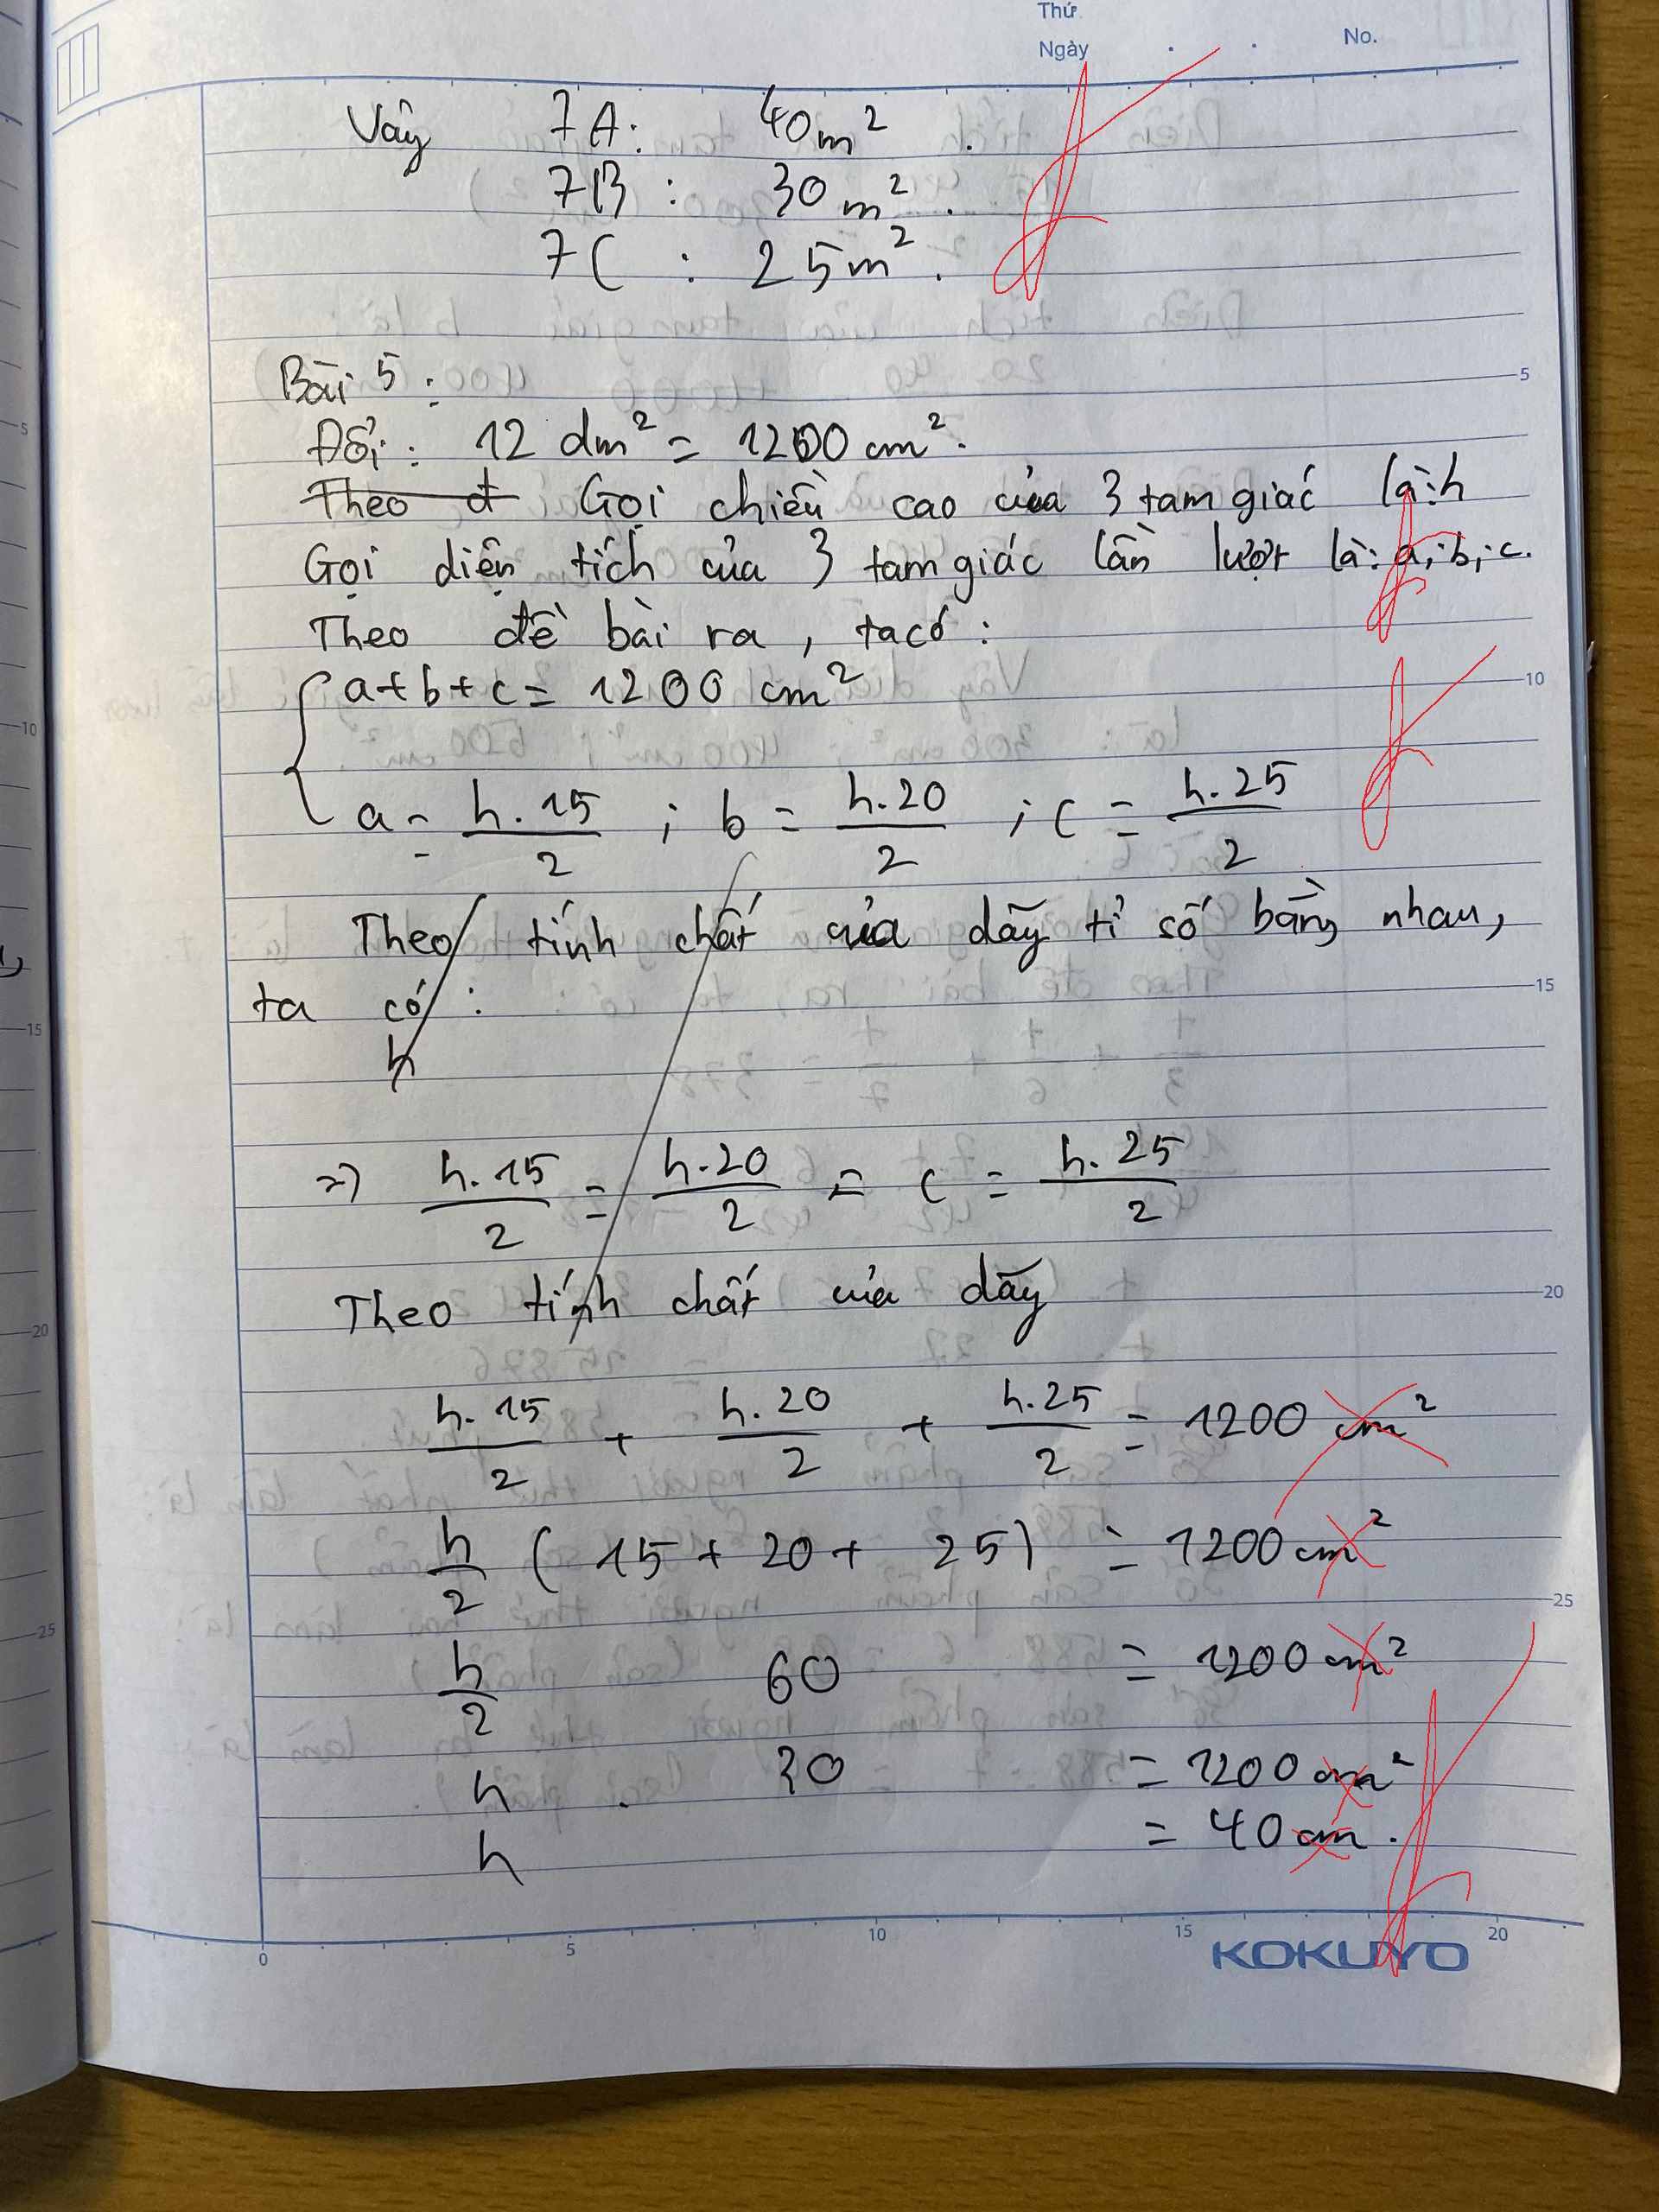 Thứ
Ngày . . No.
Vậy 7A: 40m² .
7B : 30m² .
7C : 25m² .
Bài 5 :
Đổi: 12 dm² = 1200 cm².
Theo đ Gọi chiều cao của 3 tam giác là: h
Gọi diện tích của 3 tam giác lần lượt là: a; b; c.
Theo đề bài ra, ta có:
{ a+b+c = 1200 cm²
a = h.15/2 ; b = h.20/2 ; c = h.25/2
Theo tính chất của dãy tỉ số bằng nhau,
ta có :
h
=> h.15/2 = h.20/2 = c = h.25/2
Theo tính chất của dãy
h.15/2 + h.20/2 + h.25/2 = 1200 cm²
h/2 ( 15 + 20 + 25) = 1200 cm²
h/2 60 = 1200 cm²
h . 30 = 1200 cm²
h = 40 cm .
KOKUYO